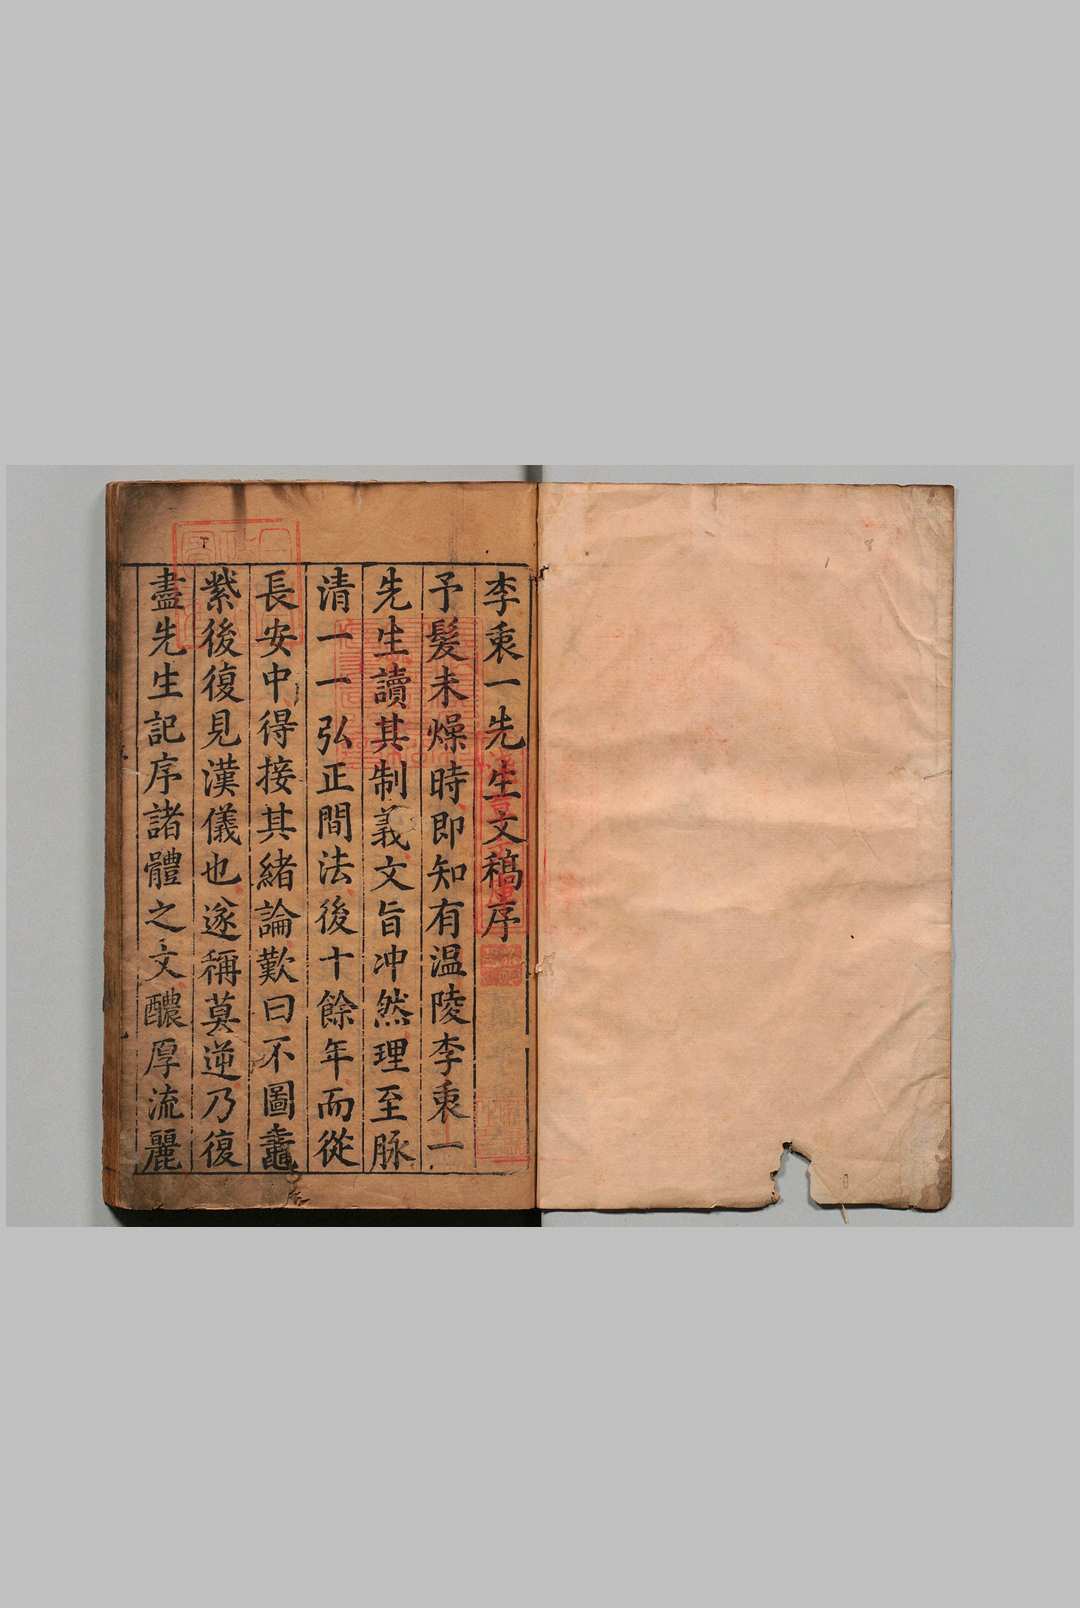 李衷一先生文稿序
予髮未燥時即知有温陵李衷一
先生讀其制義文旨冲然理至脉
清一一弘正間法後十餘年而從
長安中得接其緒論歎曰不圖鼃
紫後復見漢儀也遂稱莫逆乃復
盡先生記序諸體之文醲厚流麗